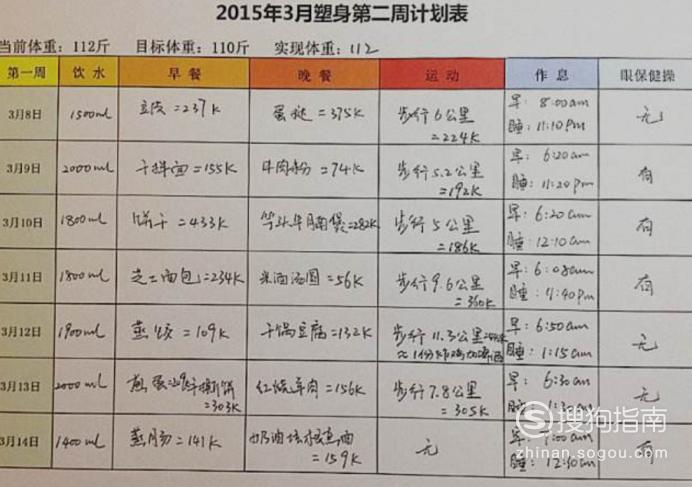 2015年3月塑身第二周计划表
当前体重：112斤 目标体重：110斤 实现体重：112
第一周 饮水 早餐 晚餐 运动 作息 眼保健操
3月8日 1500ml 豆皮=237k 蛋挞=375k 步行6公里=224k 早：8:00am 睡：11:10pm 无
3月9日 2000ml 干拌面=155k 牛肉粉=74k 步行5.2公里=192k 早：6:20am 睡：11:20pm 有
3月10日 1800ml 饼干=433k 牛腩煲=282k 步行5公里=186k 早：6:20am 睡：12:10am 有
3月11日 1800ml 芝士面包=234k 米酒汤圆=56k 步行9.6公里=360k 早：6:08am 睡：11:40pm 有
3月12日 1900ml 蒸饺=109k 干锅豆腐=132k 步行11.3公里 早：6:50am 睡：1:15am 无
3月13日 2000ml =303k 红烧羊肉=156k 步行7.8公里=305k 早：6:30am 睡：1:30am 无
3月14日 1400ml 蒸肠=141k 奶油 =159k 无 早：7:00am 睡：12:30am 有
搜狗指南
zhinan.sogou.com